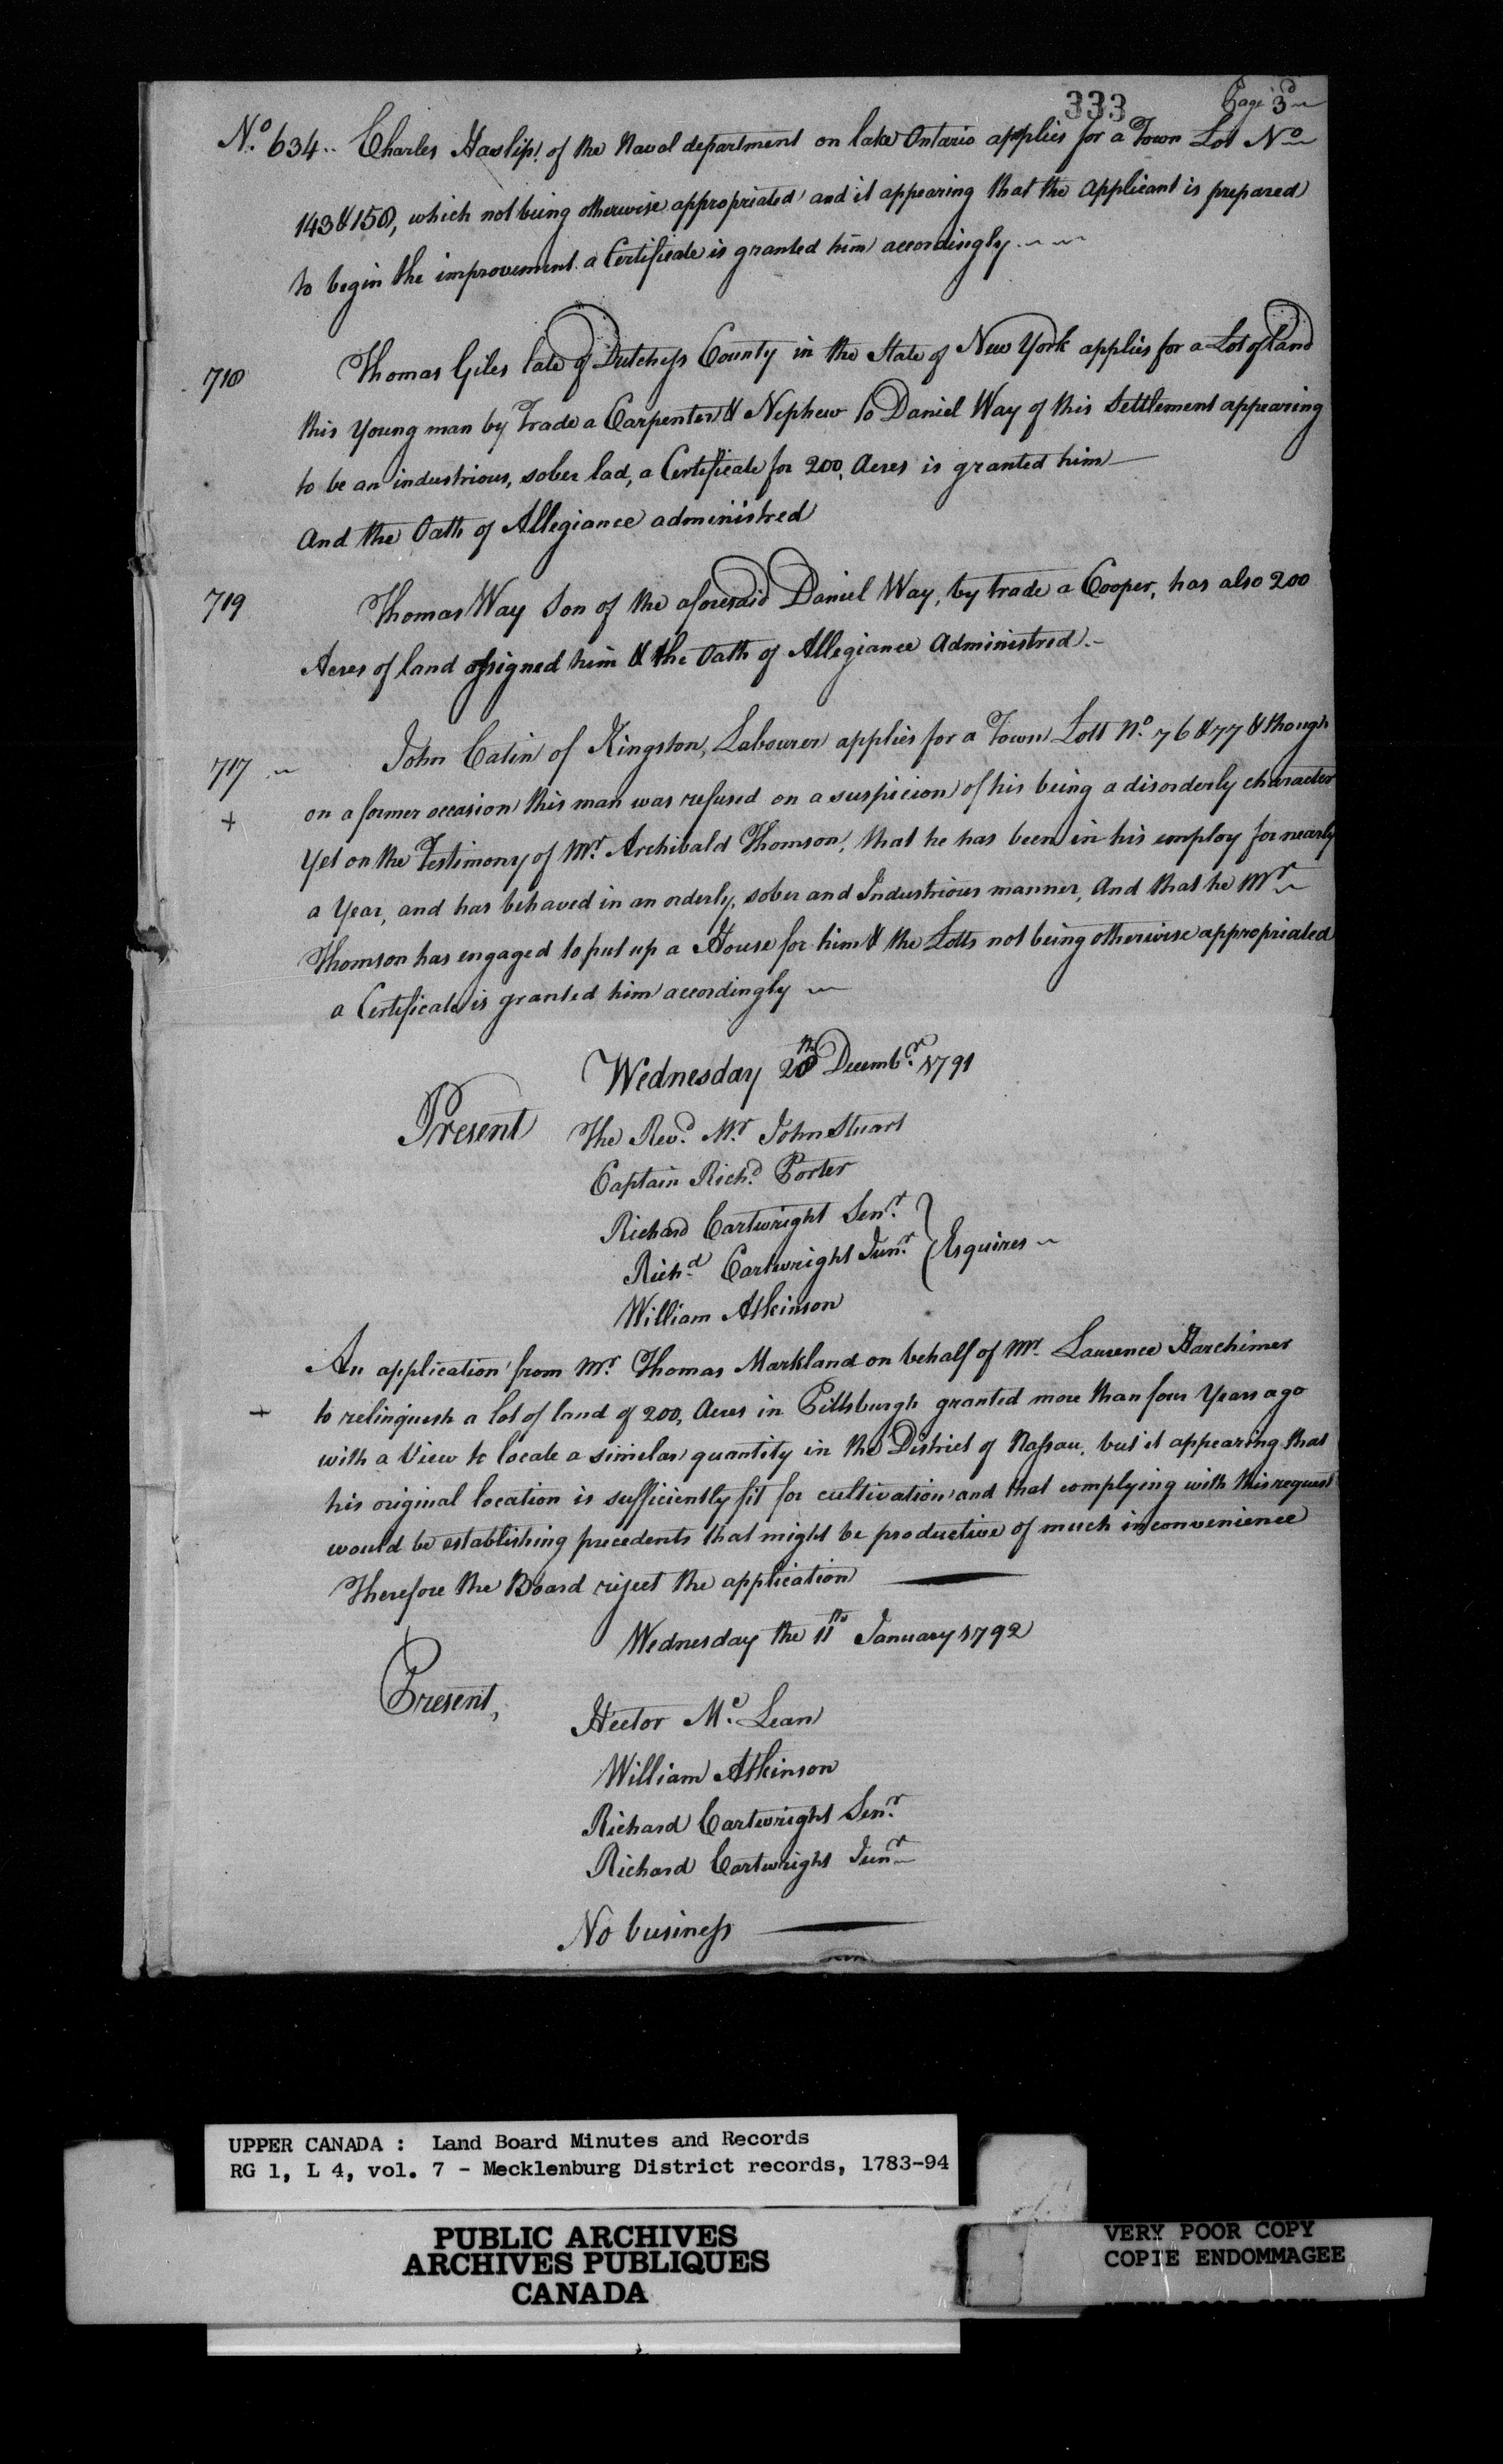 333
Page 3d
No. 634.. Charles Haslip, of the Naval department on lake Ontario applies for a Town Lot No
143 & 158, which not being otherwise appropriated and it appearing that the applicant is prepared
to begin the improvement a Certificate is granted him accordingly
718 Thomas Giles late of Dutchess County in the State of New York applies for a Lot of land
this young man by Trade a Carpenter & Nephew to Daniel Way of this Settlement appearing
to be an industrious, sober lad, a Certificate for 200, Acres is granted him—
And the Oath of Allegiance administred
719 Thomas Way Son of the aforesaid Daniel Way, by trade a Cooper, has also 200
Acres of land assigned him & the Oath of Allegiance Administred.-
717 John Catin of Kingston, Labourer applies for a Town Lott No. 76 & 77 & though
+ on a former occasion this man was refused on a suspicion of his being a disorderly character
yet on the Testimony of Mr. Archibald Thomson, that he has been in his employ for nearly
a Year, and has behaved in an orderly, sober and Industrious manner, And that he Mr
Thomson has engaged to put up a House for him & the Lotts not being otherwise appropriated
a Certificate is granted him accordingly
Wednesday 28th Decembr. 1791
Present The Revd. Mr. John Stuart
Captain Richd. Porter
Richard Cartwright Senr.
Richd. Cartwright Junr. } Esquires
William Atkinson
An application from Mr. Thomas Markland on behalf of Mr. Laurence Harchimer
+ to relinquesh a lot of land of 200, Acres in Pittsburgh granted more than four Years ago
with a View to locate a similar quantity in the District of Nassau, but it appearing that
his original location is sufficiently fit for cultivation and that complying with this request
would be establishing precedents that might be productive of much inconvenience
Therefore the Board reject the application
Wednesday the 11th January 1792
Present,
Hector Mc. Lean
William Atkinson
Richard Cartwright Senr.
Richard Cartwright Junr
No business
UPPER CANADA : Land Board Minutes and Records
RG 1, L 4, vol. 7 - Mecklenburg District records, 1783-94
PUBLIC ARCHIVES
ARCHIVES PUBLIQUES
CANADA
VERY POOR COPY
COPIE ENDOMMAGEE